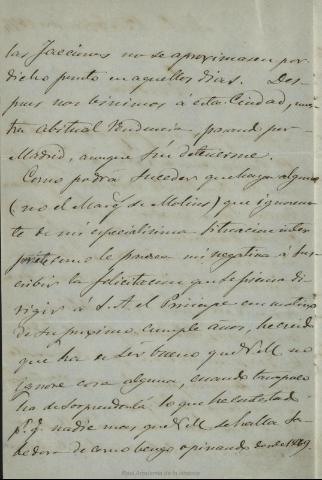 las facciones no se aproximasen por
dicho punto en aquellos dias. Des-
pues nos binimos á esta Ciudad, nues-
tra abitual residencia, pasando por
Madrid, aunque sin detenerme.
Como podrá suceder que haya alguno
(no el Marq.s de Molins) que ignorante
de mi especialisima situacion inter-
prete como le parezca mi negativa á sus-
cribir la felicitacion que se piensa di-
rigir á S. A. el Principe con motivo
de su proximo cumple años, he creido
que ha de ser bueno que V.M. no
ignore cosa alguna, cuando tampoco
ha de sorprenderla lo que he contestado
p.r q.e nadie mas que V.M. se halla sa-
bedora de como bengo opinando desde 1869.
Real Academia de la Historia